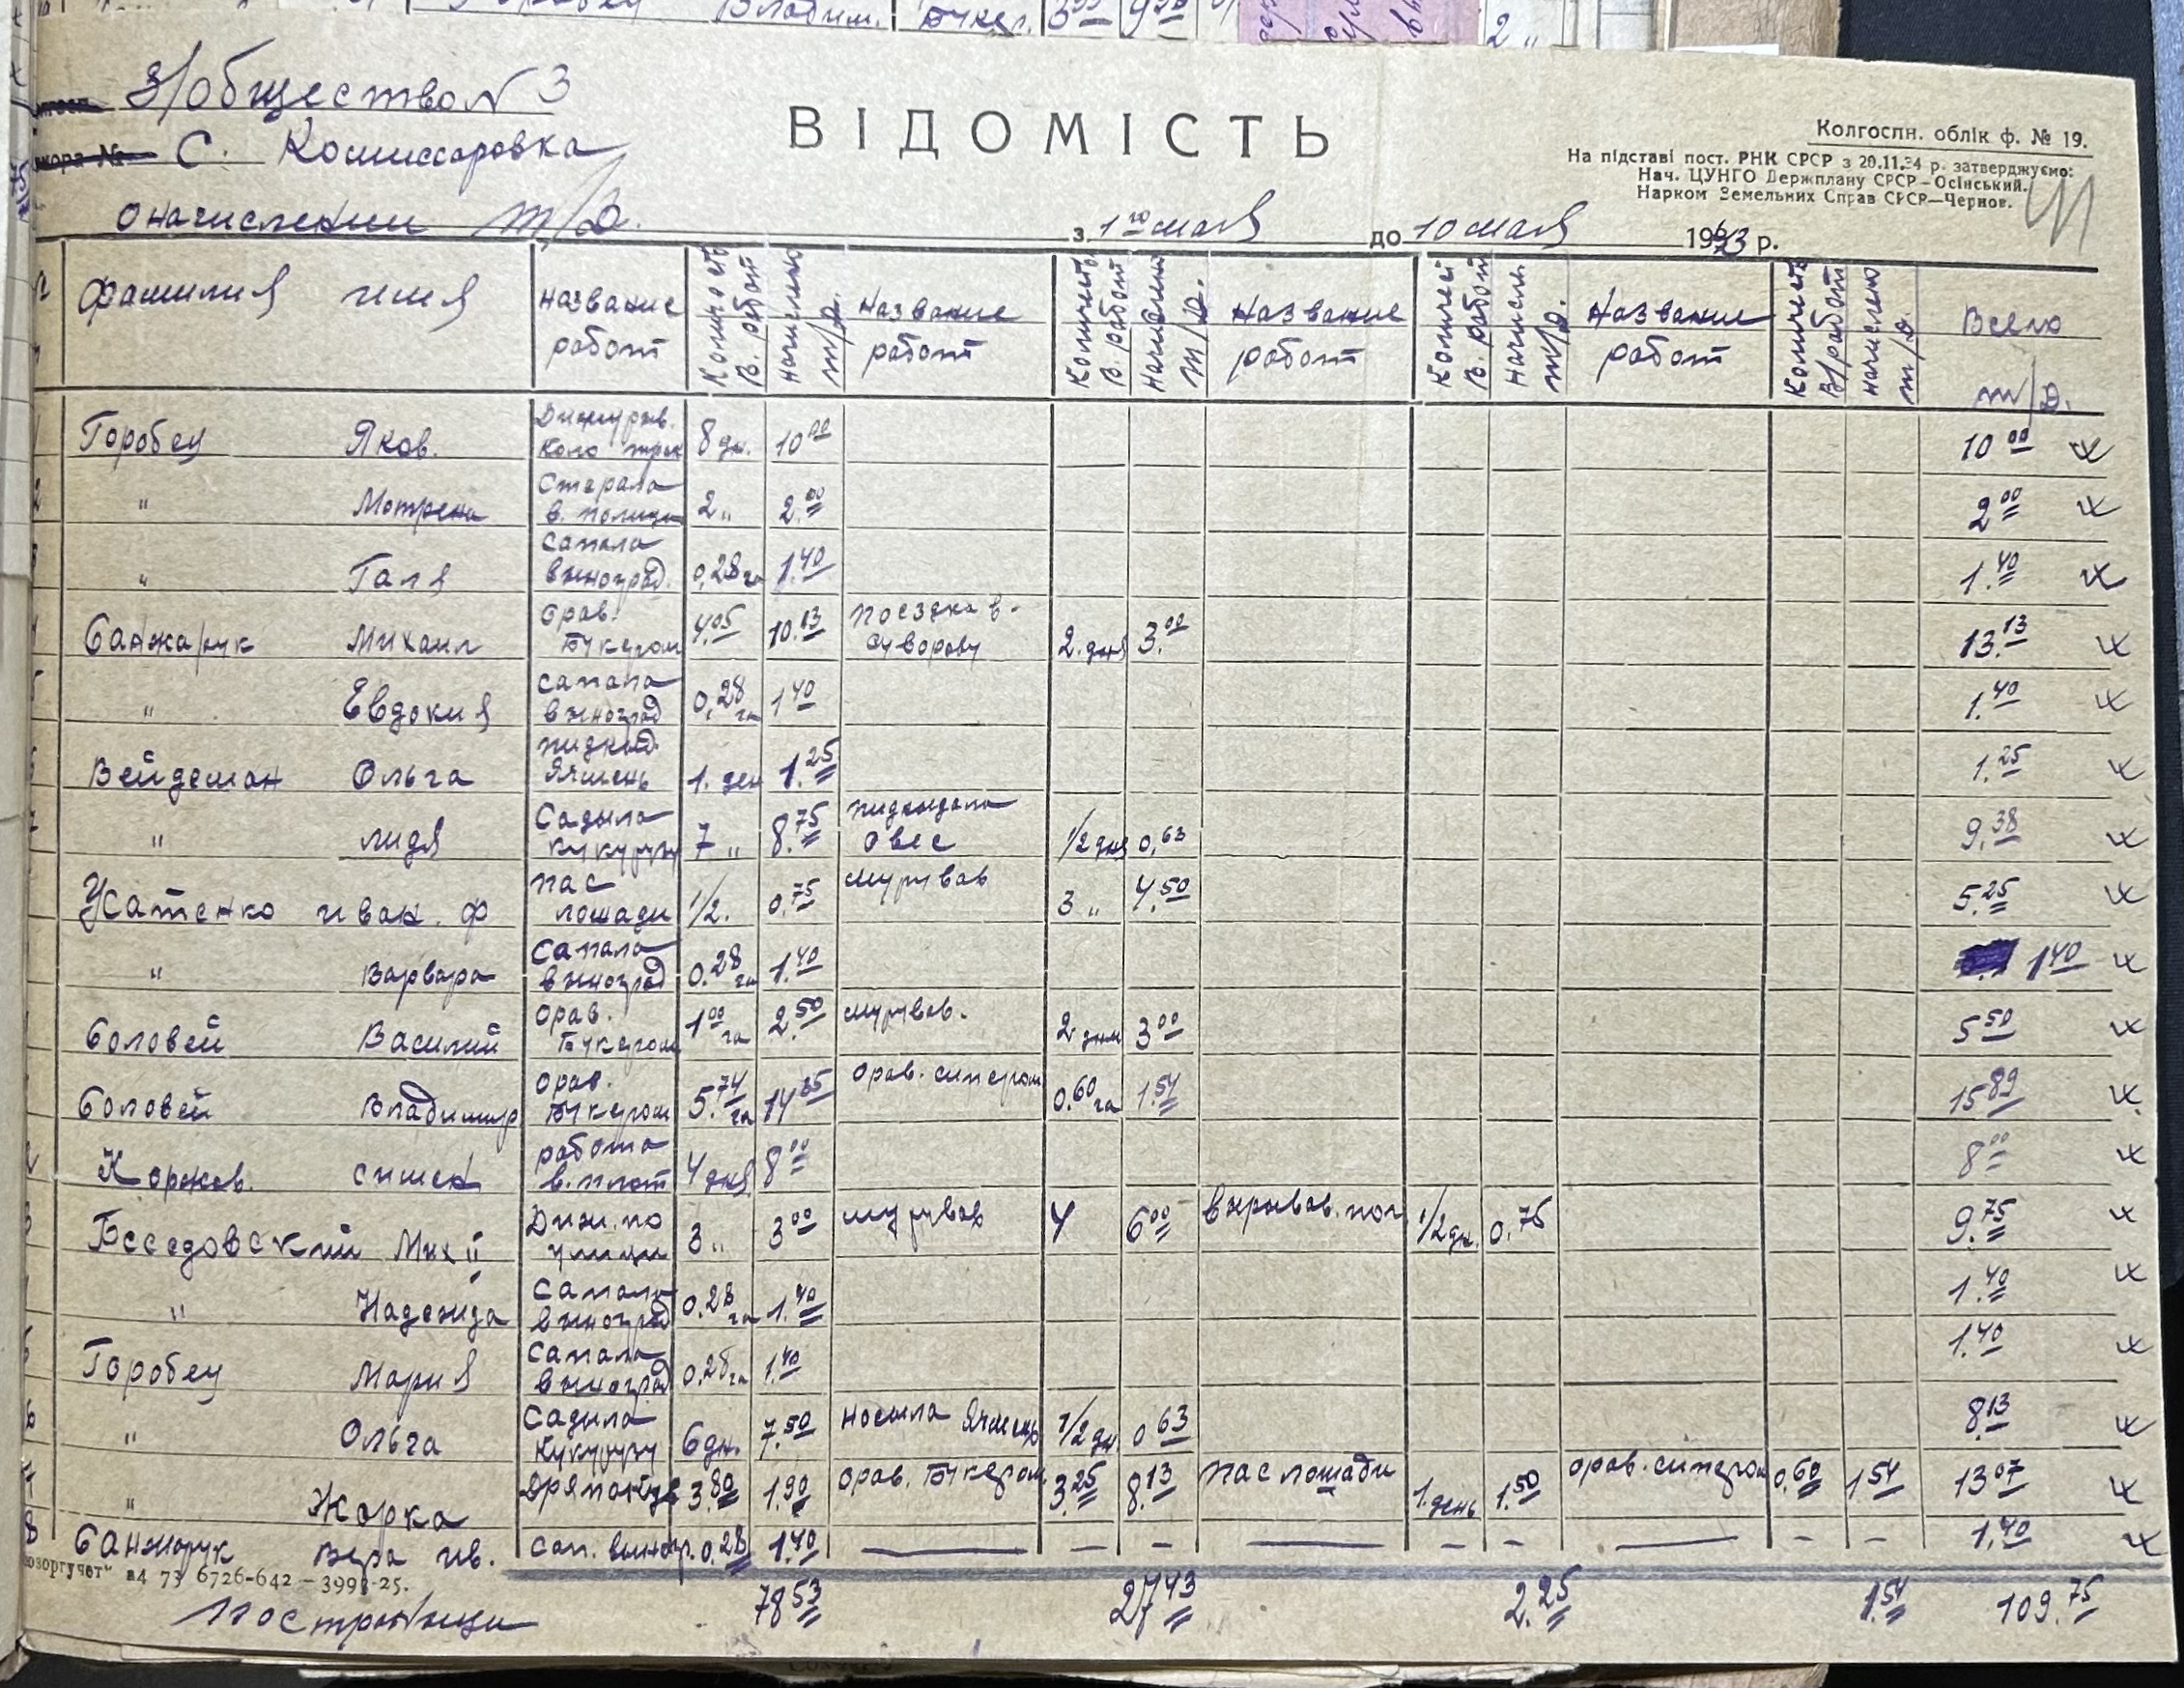 З/общество N 3
С. Комиссаровка
ВІДОМІСТЬ
Колгоспн. облік ф. № 19.
На підставі пост. РНК СРСР з 20.11.34 р. затверджуємо:
Нач. ЦУНГО Держплану СРСР—Осінський.
Нарком Земельних Справ СРСР—Чернов.
о начислении т/д. з 1го мая до 10 мая 1943 р.
Фамилия имя Название работ В. работ начислено т/д. Название работ Количеств В. работ Начислено т/д. Название работ Количест В. работ Начислен. т/д. Название работ Количеств В/работ начислено т/д. Всего т/д.
1 Горобец Яков. 8 дн. 10 00 10 00
2 " Мотрена Стерала в. полиции 2 " 2. 00 2 00
3 " Галя сапала виноград. 0,28 га 1.40 1.40
4 Санжарук Михаил Орав. Букером 4.05 10.13 поездка в. Суворову 2. дня 3.00 13.13
5 " Евдокия сапала виноград 0,28 га 1 40 1.40
6 Вейдеман Ольга Ячмень 1. ден 1.25 1.25
7 " лидя Садыла кукурузу 7 " 8.75 пидкидала овес 1/2 дня 0,63 9,38
Усатенко иван. ф пас лошади 1/2. 0.75 мурував 3 " 4.50 5.25
" Варвара Сапала виноград 0.28 га 1.40 1 40
Соловей Василий Орав. Букером 1 00 га 2.50 мурував. 2 дня 3 00 5 50
Соловей Владимир Орав. Букером 5.74 га 14 35 Орав. сипером 0.60 га 1.54 15 89
2 Коржов. симен работа в. плот 4 дня 8 00 8 00
3 Беседовский Мих й по улици 3 " 3 00 мурував 4 6 00 1/2 дн. 0.75 9.75
" Надежда Сапала виноград 0.28 га 1.40 1.40
5 Горобец Мария Сапала виноград 0.28 га 1.40 1.40
6 " Ольга Садыла Кукурузу 6 дн. 7.50 носила Ячмень 1/2 дн 0 63 8.13
7 " Жорка 3.80 1.90 орав. Букером 3.25 8.13 пас лошади 1. день 1.50 орав. сипером 0.60 1 54 13 07
8 Санжарук Вера ив. Сап. виногр. 0.28 1.40 — — — — — — — — — 1.40
а4 73 6726-642 — 3993-25.
По страници 78 53 27 43 2.25 1.54 109.75